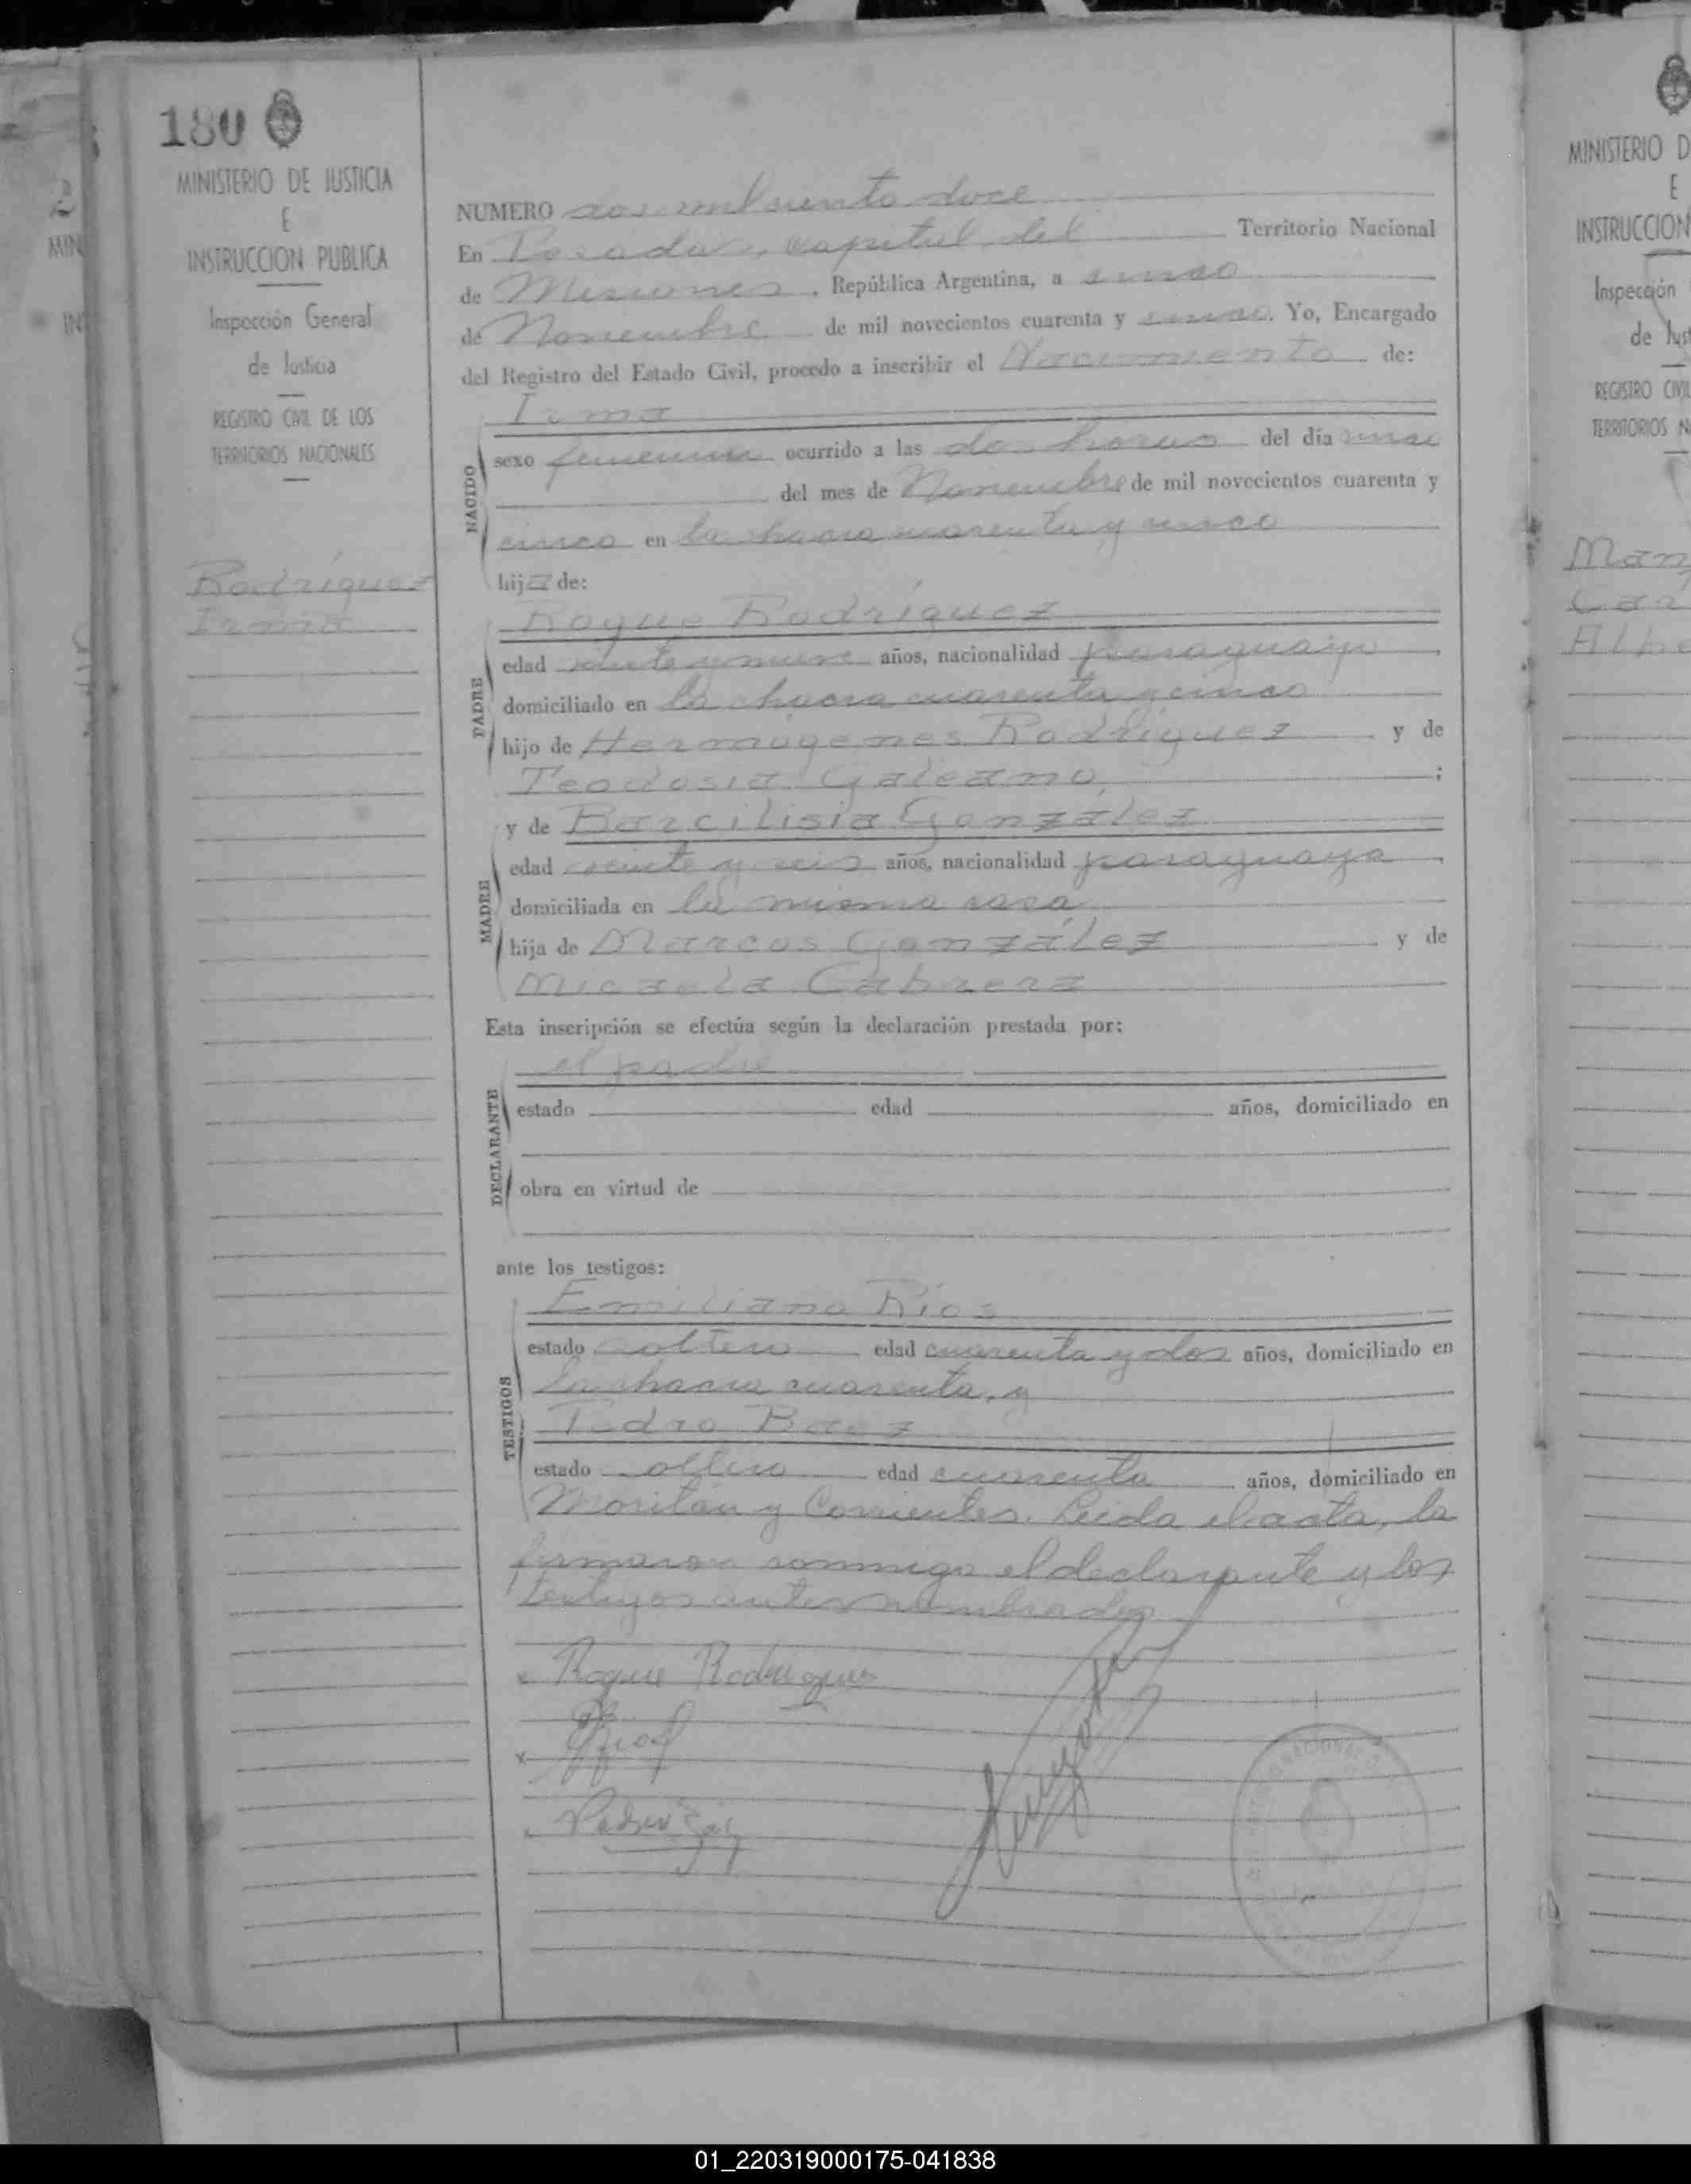 180
MINISTERIO DE JUSTICIA
E
INSTRUCCION PUBLICA
Inspección General
de Justicia
REGISTRO CIVIL DE LOS
TERRITORIOS NACIONALES
Rodríguez
Irma
NUMERO dos mil ciento doce
En Posadas, capital del Territorio Nacional
de Misiones, República Argentina, a cinco
de Noviembre de mil novecientos cuarenta y cinco. Yo, Encargado
del Registro del Estado Civil, procedo a inscribir el Nacimiento de:
Irma
NACIDO
sexo femenino ocurrido a las dos horas del día
del mes de Noviembre de mil novecientos cuarenta y
cinco en la chacra cuarenta y cinco
hija de:
Roque Rodríguez
PADRE
edad veinte y nueve años, nacionalidad paraguayo,
domiciliado en la chacra cuarenta y cinco
hijo de Hermógenes Rodríguez y de
Teodosia Galeano,;
y de Barcilisia González
MADRE
edad veinte y seis años, nacionalidad paraguaya,
domiciliada en la misma casa,
hija de Marcos González y de
Micaela Cabrera
Esta inscripción se efectúa según la declaración prestada por:
el padre
DECLARANTE
estado edad años, domiciliado en
obra en virtud de
ante los testigos:
Emiliano Ríos
TESTIGOS
estado soltero edad cuarenta y dos años, domiciliado en
la chacra cuarenta, y
Pedro Baez
estado soltero edad cuarenta años, domiciliado en
Moritán y Corrientes. Leida el acta, la
firmaron conmigo el declarante y los
testigos antes nombrados
Roque Rodriguez
x
Pedro
MINISTERIO D
E
INSTRUCCION
Inspección
de Just
REGISTRO CIVIL
TERRITORIOS N
Man
Car
Albe
01_220319000175-041838